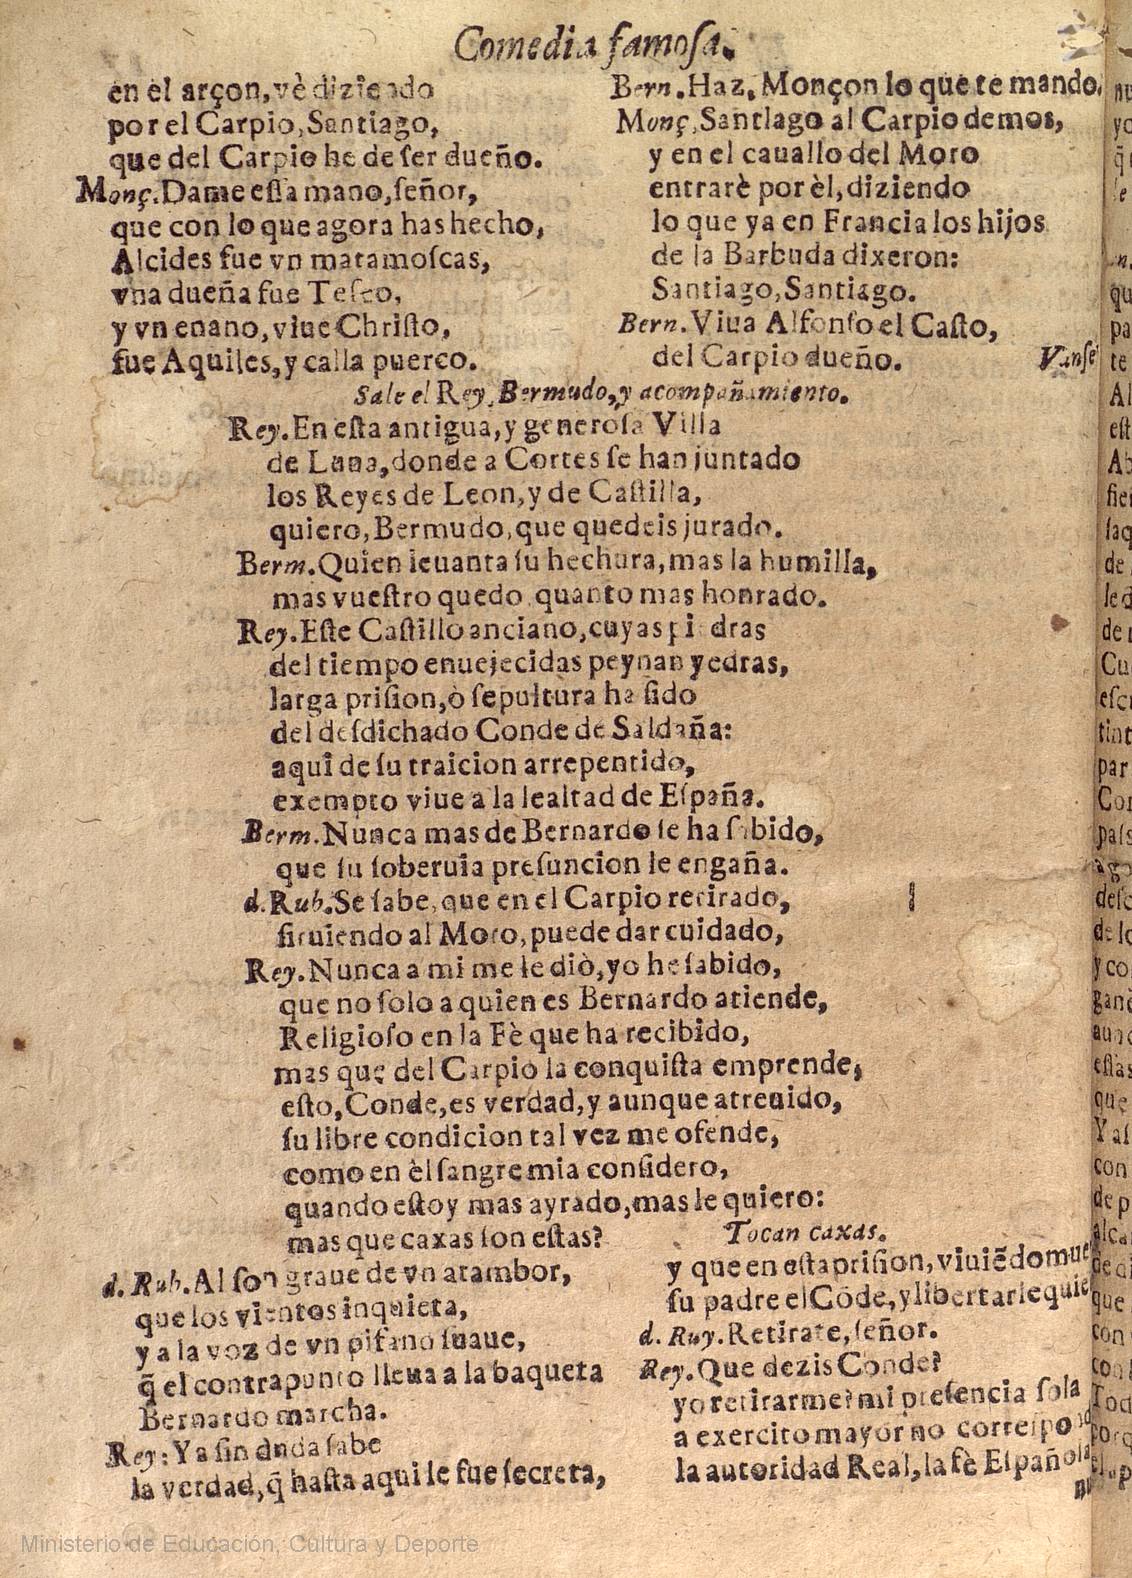 Comedia famoſa.
en el arçon, vè diziendo
por el Carpio, Santiago,
que del Carpio he de ſer dueño.
Monç. Dame eſſa mano, ſeñor,
que con lo que agora has hecho,
Alcides fue vn matamoſcas,
vna dueña fue Teſeo,
y vn enano, viue Chriſto,
fue Aquiles, y calla puerco.
Bern. Haz, Monçon lo que te mando.
Monç, Santlago al Carpio demos,
y en el cauallo del Moro
entrarè por èl, diziendo
lo que ya en Francia los hijos
de la Barbuda dixeron:
Santiago, Santiago.
Bern. Viua Alfonſo el Caſto,
del Carpio dueño. Vanſe
Sale el Rey, Bermudo, y acompañamiento.
Rey. En eſta antigua, y generoſa Villa
de Luna, donde a Cortes ſe han juntado
los Reyes de Leon, y de Caſtilla,
quiero, Bermudo, que quedeis jurado.
Berm. Quien leuanta ſu hechura, mas la humilla,
mas vueſtro quedo quanto mas honrado.
Rey. Eſte Caſtillo anciano, cuyas pi dras
del tiempo enuejecidas peynan yedras,
larga priſion, ò ſepultura ha ſido
del deſdichado Conde de Saldaña:
aqui de ſu traicion arrepentido,
exempto viue a la lealtad de Eſpaña.
Berm. Nunca mas de Bernardo ſe ha ſabido,
que ſu ſoberuia preſuncion le engaña.
d. Rub. Se ſabe, que en el Carpio retirado,
ſiruiendo al Moro, puede dar cuidado,
Rey. Nunca a mi me le diò, yo he ſabido,
que no ſolo a quien es Bernardo atiende,
Religioſo en la Fè que ha recibido,
mas que del Carpio la conquiſta emprende,
eſto, Conde, es verdad, y aunque atreuido,
ſu libre condicion tal vez me ofende,
como en èl ſangre mia conſidero,
quando eſtoy mas ayrado, mas le quiero:
mas que caxas ſon eſtas? Tocan caxas.
d. Rub. Al ſon graue de vn atambor,
que los vientos inquieta,
y a la voz de vn pifano ſuaue,
q̃ el contrapunto lleua a la baqueta
Bernardo marcha.
Rey: Ya ſin duda ſabe
la verdad, q̃ haſta aqui le fue ſecreta,
y que en eſta priſion, viuiẽdo mue
ſu padre el Cõde, y libertarle quie
d. Ruy. Retirate, ſeñor.
Rey. Que dezis Conde?
yo retirarme? mi preſencia ſola
a exercito mayor no correſpo
la autoridad Real, la fè Eſpañola
Ministerio de Educación, Cultura y Deporte